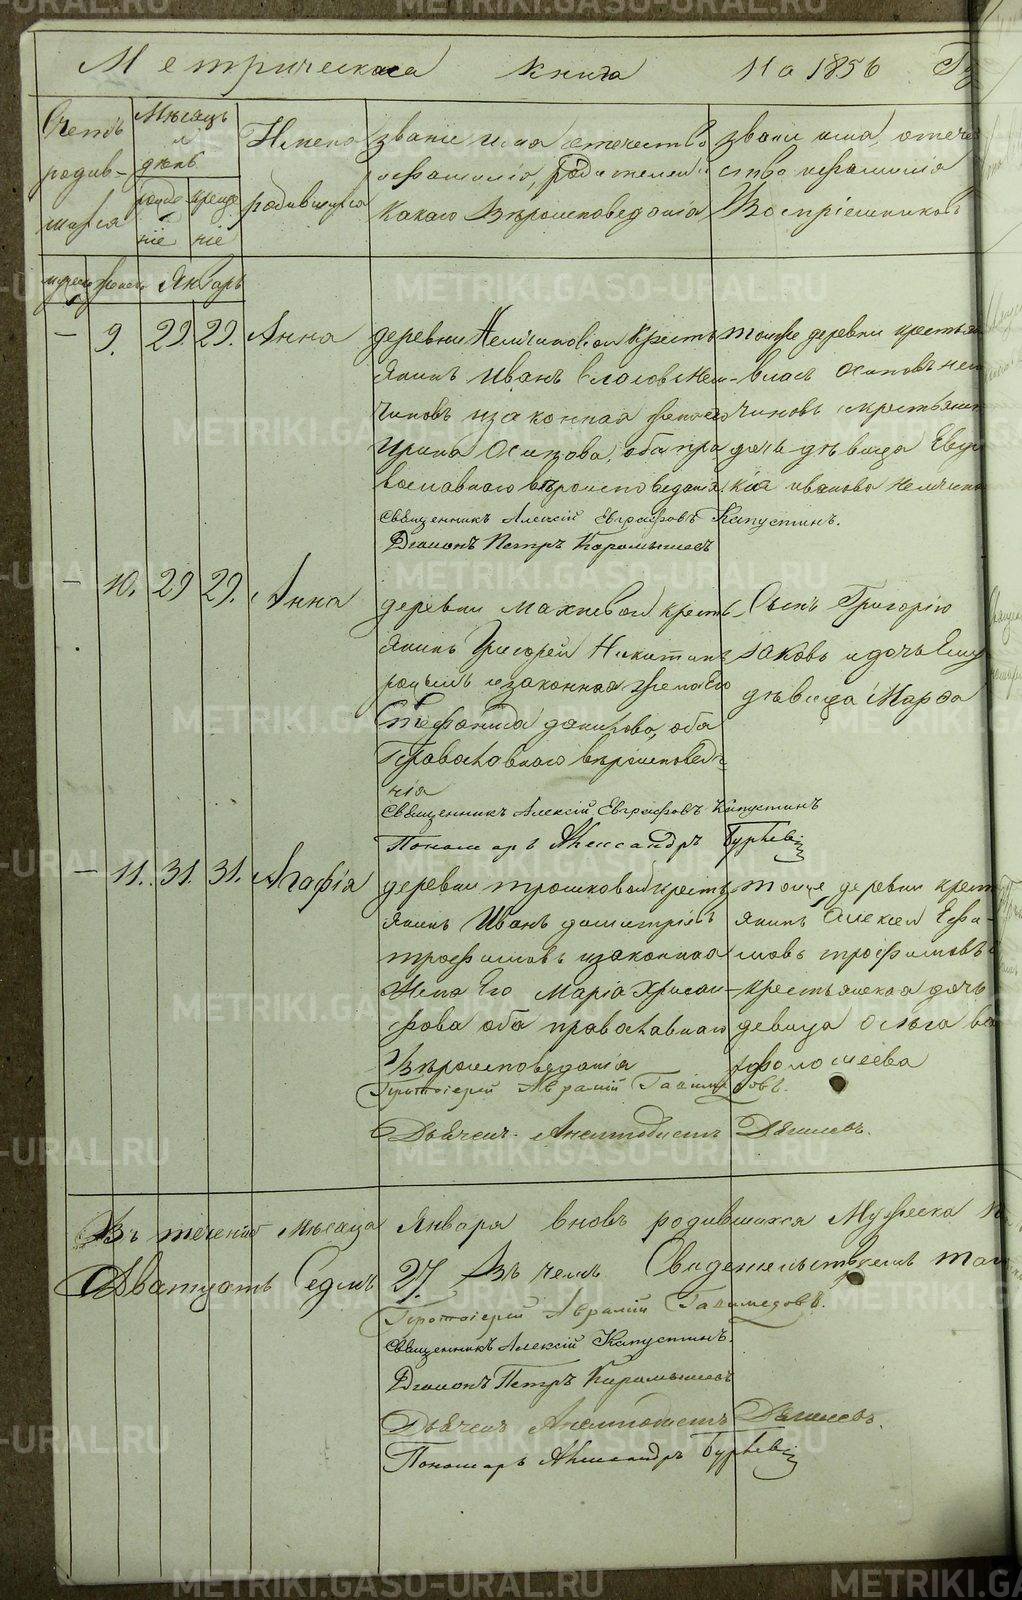 Метрическая книга На 1856
Счетъ родив- шихся
Месяцъ и день
рожде ніе креще ніе
Имена родившихся
званіе имя отечество
и фамилія, родителей и
какаго Вѣроисповеданія
званіе имя, отече
ство и фамилія
Воспріемниковъ
Январь
— 9. 29 29. Анна
деревни Немчиновой крестъ
янинъ Иванъ Власовъ Нем-
чиновъ и законная жена его
Ирина Осипова, оба пра
вославнаго вѣроисповеданія.
тойже деревни крестьян
Власъ Осиповъ Нем
чиновъ и крестьянск
дочь дѣвица Евдо
кія Иванова Немчино
Священникъ Алексій Евграфовъ Капустинъ.
Діаконъ Петръ Карамышевъ
— 10. 29 29. Анна
деревни Махневой кресть
янинъ Григорей Никитинъ
и законная жена Его
Стефанида Данилова, оба
Православнаго вѣроисповеда
нія
Сынъ Григорію
Яковъ и дочь Ему
дѣвица Марфа
Священникъ Алексій Евграфовъ Капустинъ
Пономарь Александръ Гурьевъ
— 11. 31. 31. Агафія
деревни Трошковой кресть
янинъ Иванъ Димитріевъ
Трофимовъ и законная
Жена Его Марія Хрисан-
фова оба православнаго
Вѣроисповеданія
тойже деревни крест
янинъ Алексей Ефи-
мовъ Трофимовъ и
крестьянская дочь
девица Ольга Ва
рфоломеева
Протоіерей Аврамій
Дьячекъ Анемподистъ Дягилевъ.
Въ теченіе месяца Января вновь родившихся Мужеска
Дватцать Седмь 27. Въ чемъ Свидетельствуемъ
Протоіерей Аврамій
Священникъ Алексій Капустинъ.
Діаконъ Петръ Карамышевъ
Дьячекъ Анемподистъ Дягилевъ.
Пономарь Александръ Гурьевъ
METRIKI.GASO-URAL.RU